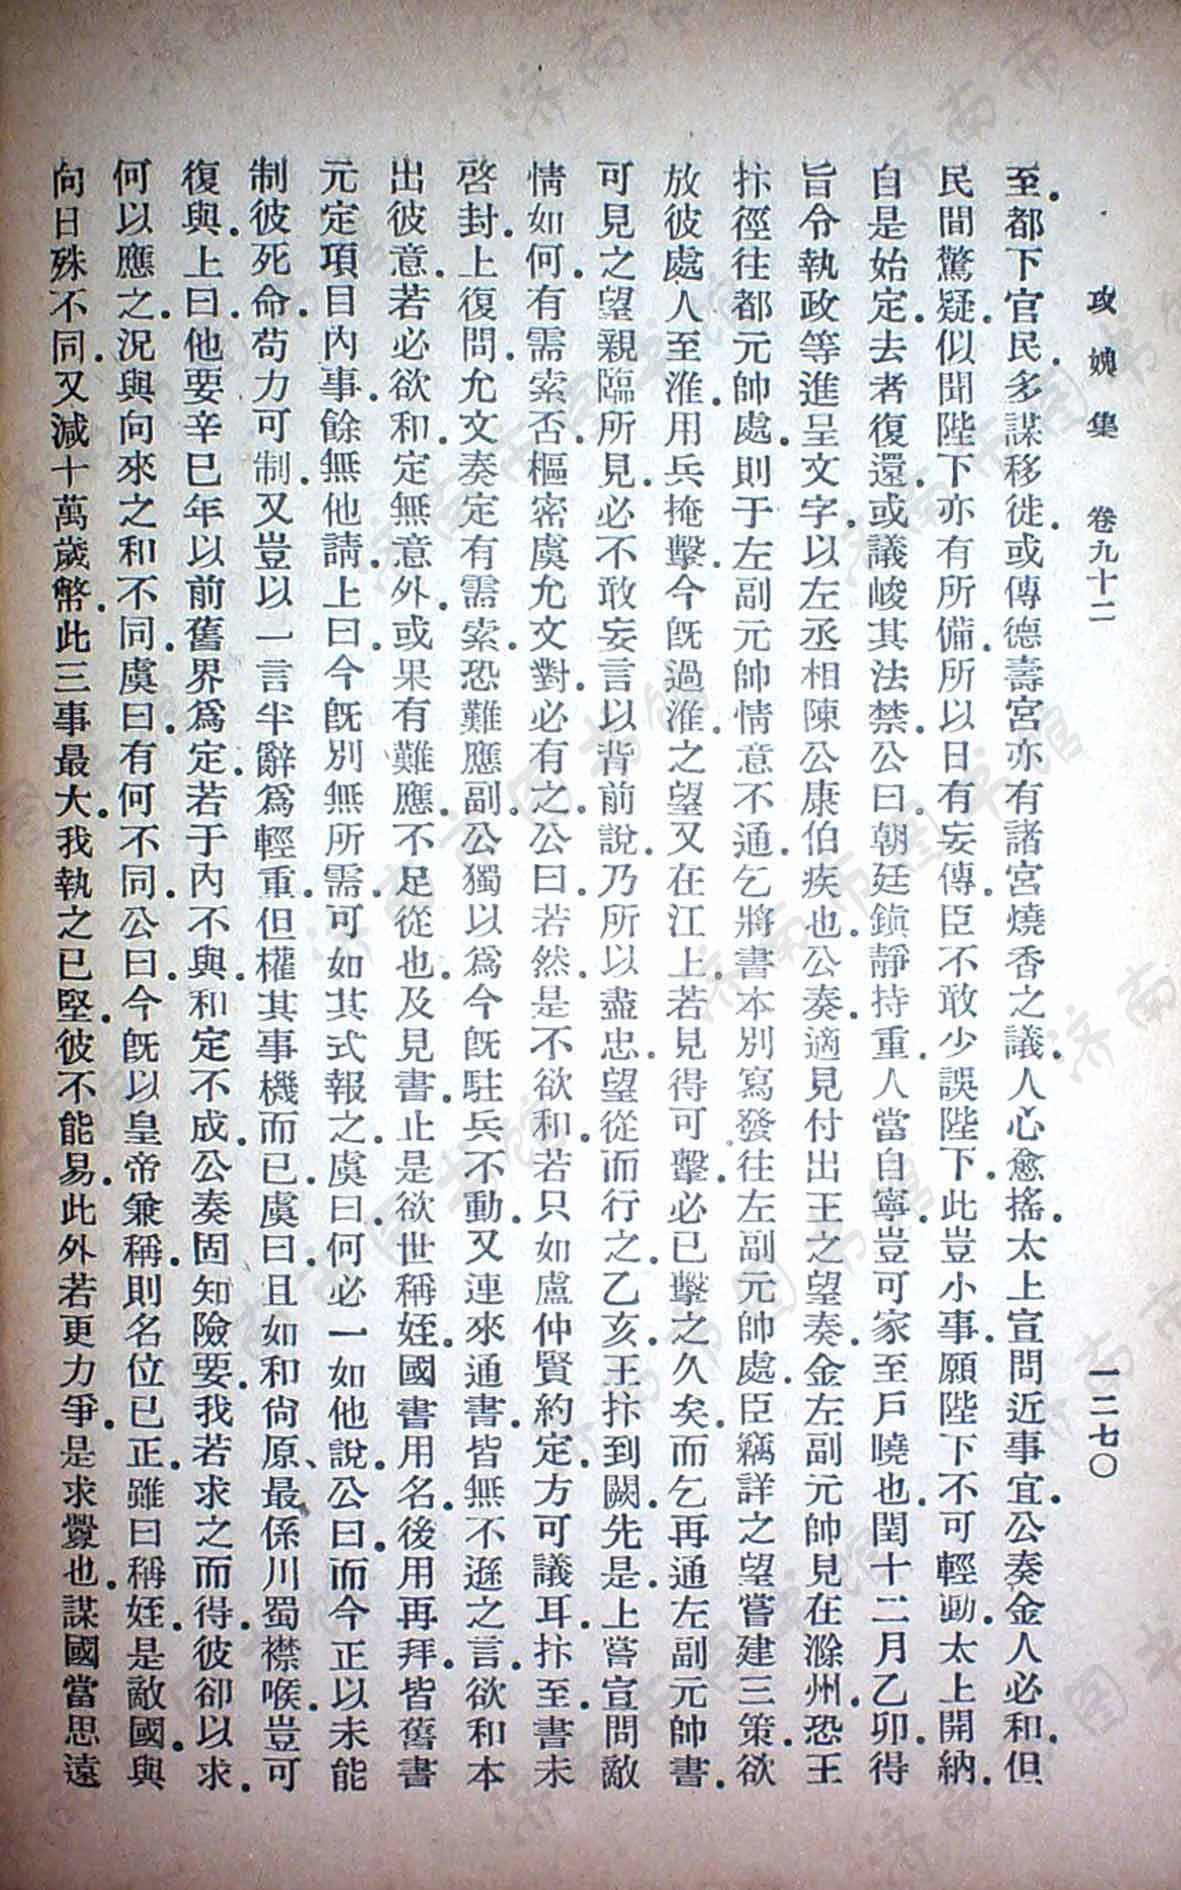 攻媿集 卷九十二 一二七〇
至都下官民多謀移徙或傳德壽宮亦有諸宮燒香之議人心愈搖太上宣問近事宜公奏金人必和但
民間驚疑似聞陛下亦有所備所以日有妄傳臣不敢少誤陛下此豈小事願陛下不可輕動太上開納
自是始定去者復還或議峻其法禁公曰朝廷鎮靜持重人當自寧豈可家至戶曉也閏十二月乙卯得
旨令執政等進呈文字以左丞相陳公康伯疾也公奏適見付出王之望奏金左副元帥見在滁州恐王
抃徑往都元帥處則于左副元帥情意不通乞將書本別寫發往左副元帥處臣竊詳之望嘗建三策欲
放彼處人至淮用兵掩擊今旣過淮之望又在江上若見得可擊必已擊之久矣而乞再通左副元帥書
可見之望親臨所見必不敢妄言以背前說乃所以盡忠望從而行之乙亥王抃到闕先是上嘗宣問敵
情如何有需索否樞密虞允文對必有之公曰若然是不欲和若只如盧仲賢約定方可議耳抃至書未
啓封上復問允文奏定有需索恐難應副公獨以爲今旣駐兵不動又連來通書皆無不遜之言欲和本
出彼意若必欲和定無意外或果有難應不足從也及見書止是欲世稱姪國書用名後用再拜皆舊書
元定項目內事餘無他請上曰今旣別無所需可如其式報之虞曰何必一如他說公曰而今正以未能
制彼死命苟力可制又豈以一言半辭爲輕重但權其事機而已虞曰且如和尙原最係川蜀襟喉豈可
復與上曰他要辛巳年以前舊界爲定若于內不與和定不成公奏固知險要我若求之而得彼卻以求
何以應之況與向來之和不同虞曰有何不同公曰今旣以皇帝兼稱則名位已正雖曰稱姪是敵國與
向日殊不同又減十萬歲幣此三事最大我執之已堅彼不能易此外若更力爭是求釁也謀國當思遠